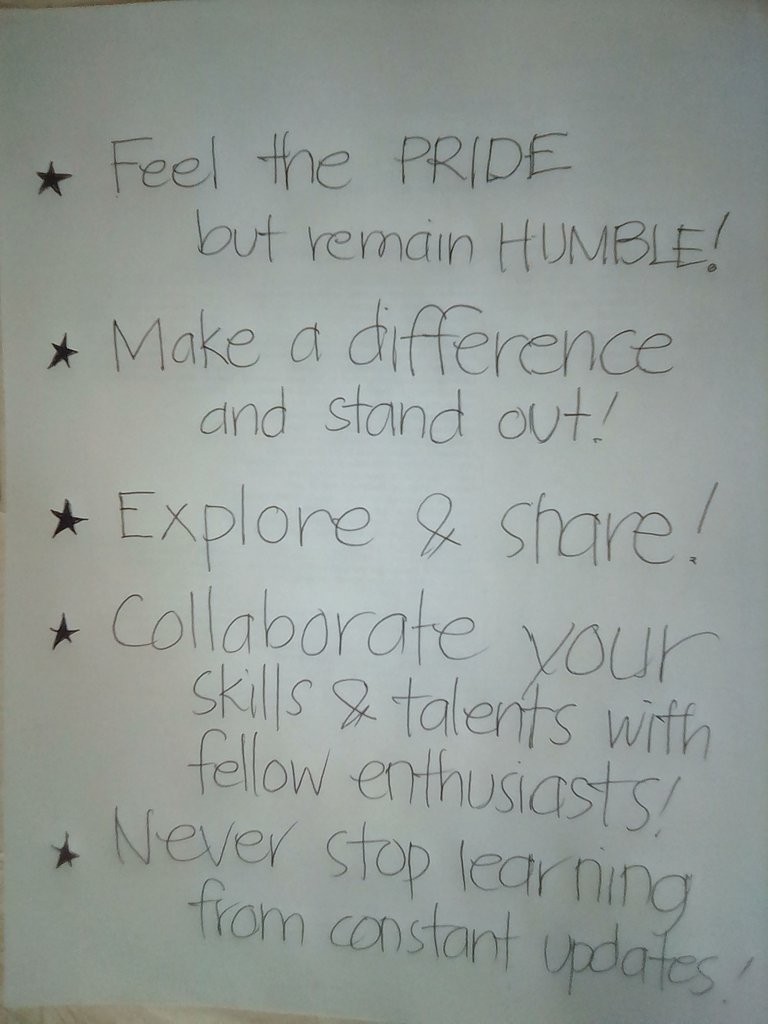 ★ Feel the PRIDE
but remain HUMBLE!
★ Make a difference
and stand out!
★ Explore & share!
★ Collaborate your
skills & talents with
fellow enthusiasts!
★ Never stop learning
from constant updates!